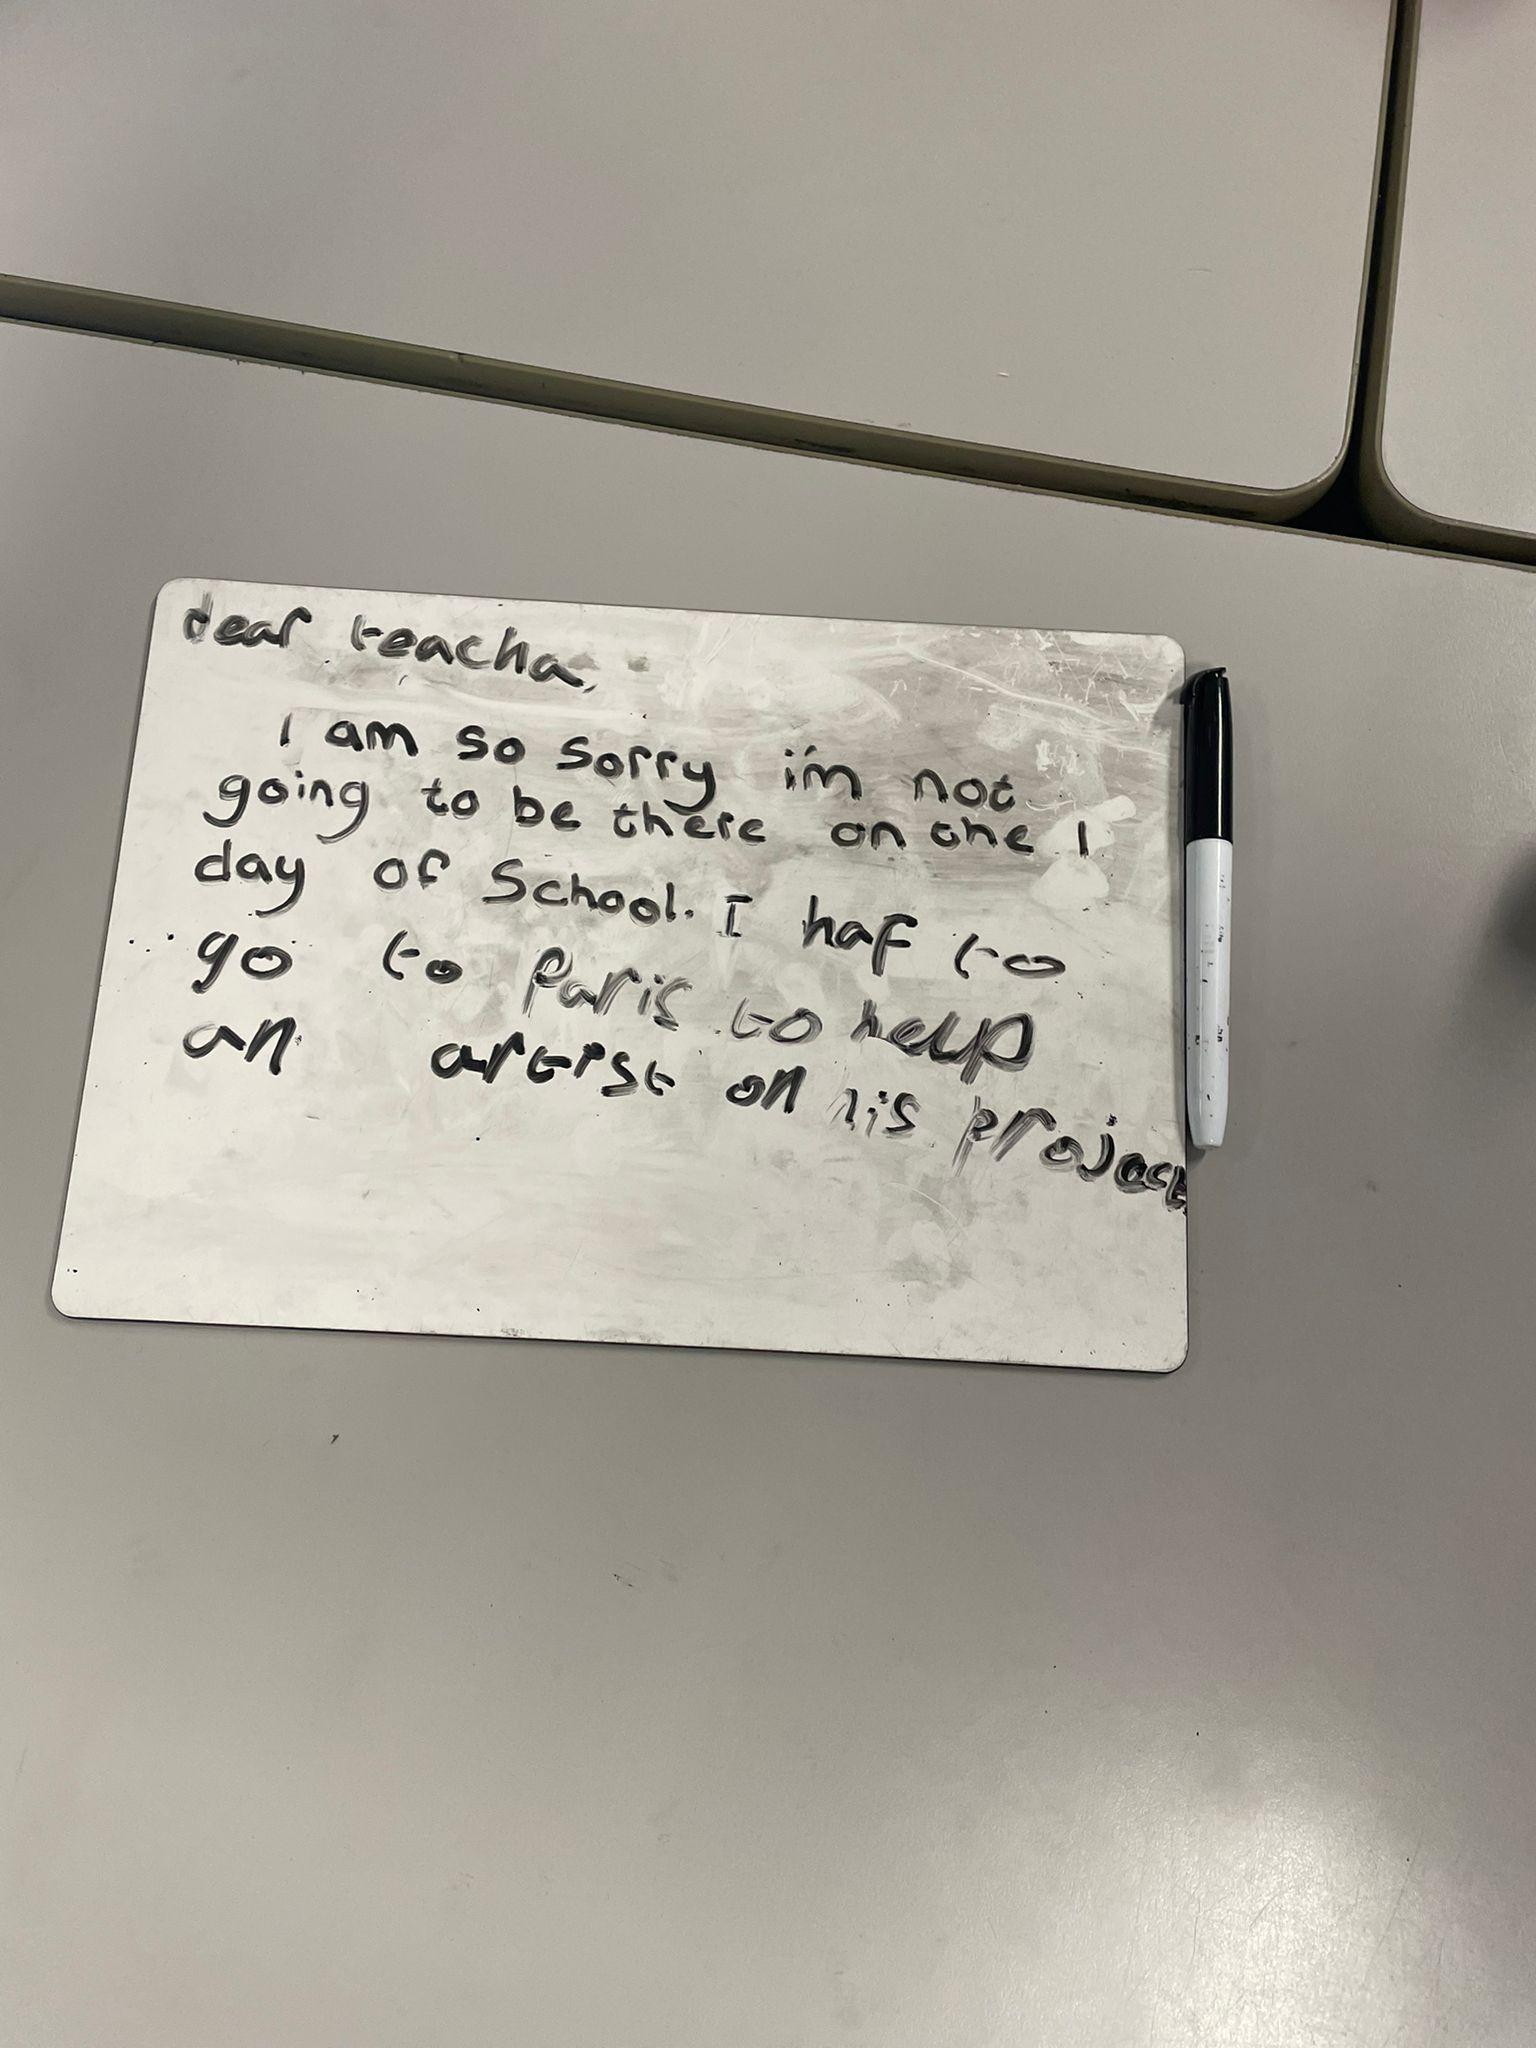 dear teacha,
I am so sorry i'm not
going to be there on the 1
day of School. I haf to
go to Paris to help
an artist on his projact